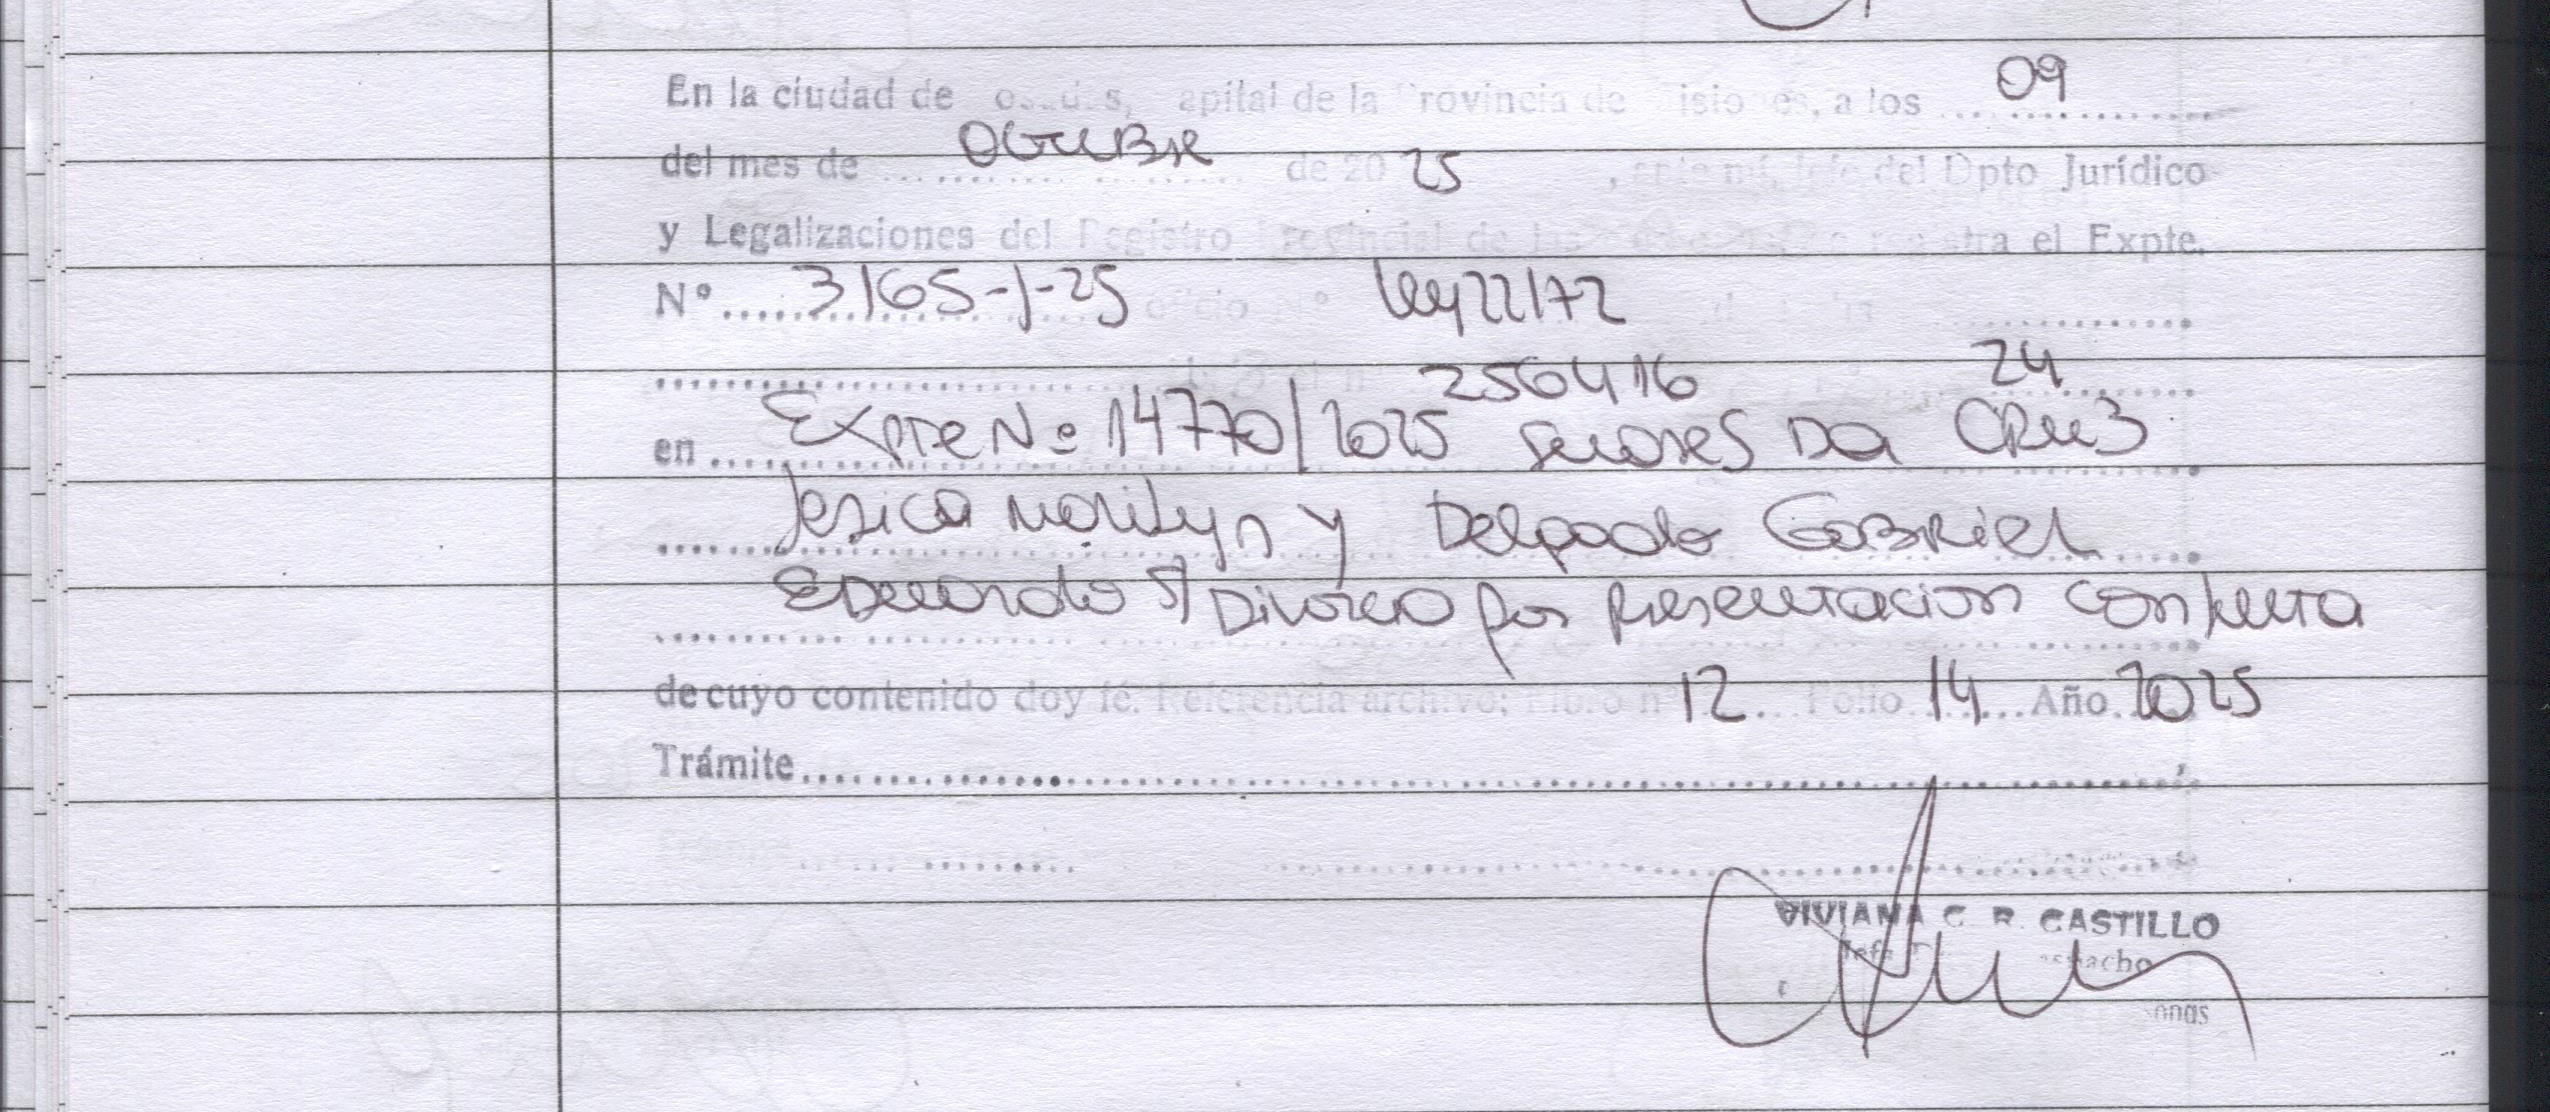 En la ciudad de Posadas, Capital de la Provincia de Misiones, a los 09
del mes de Octubre de 2025, ante mí, Jefe del Dpto Jurídico
y Legalizaciones del Registro Provincial de las registra el Expte.
Nº 3165-J-25 oficio Nº Ley 22172
256416 24
en Expte Nº 14770/2025 señores Da Cruz
Jesica Marilyn y Delgado Gabriel
Eduardo S/ Divorcio por Presentacion Conjunta
de cuyo contenido doy fé. Referencia archivo; Libro nº 12 Folio 14 Año 2025
Trámite
VIVIANA C. R. CASTILLO